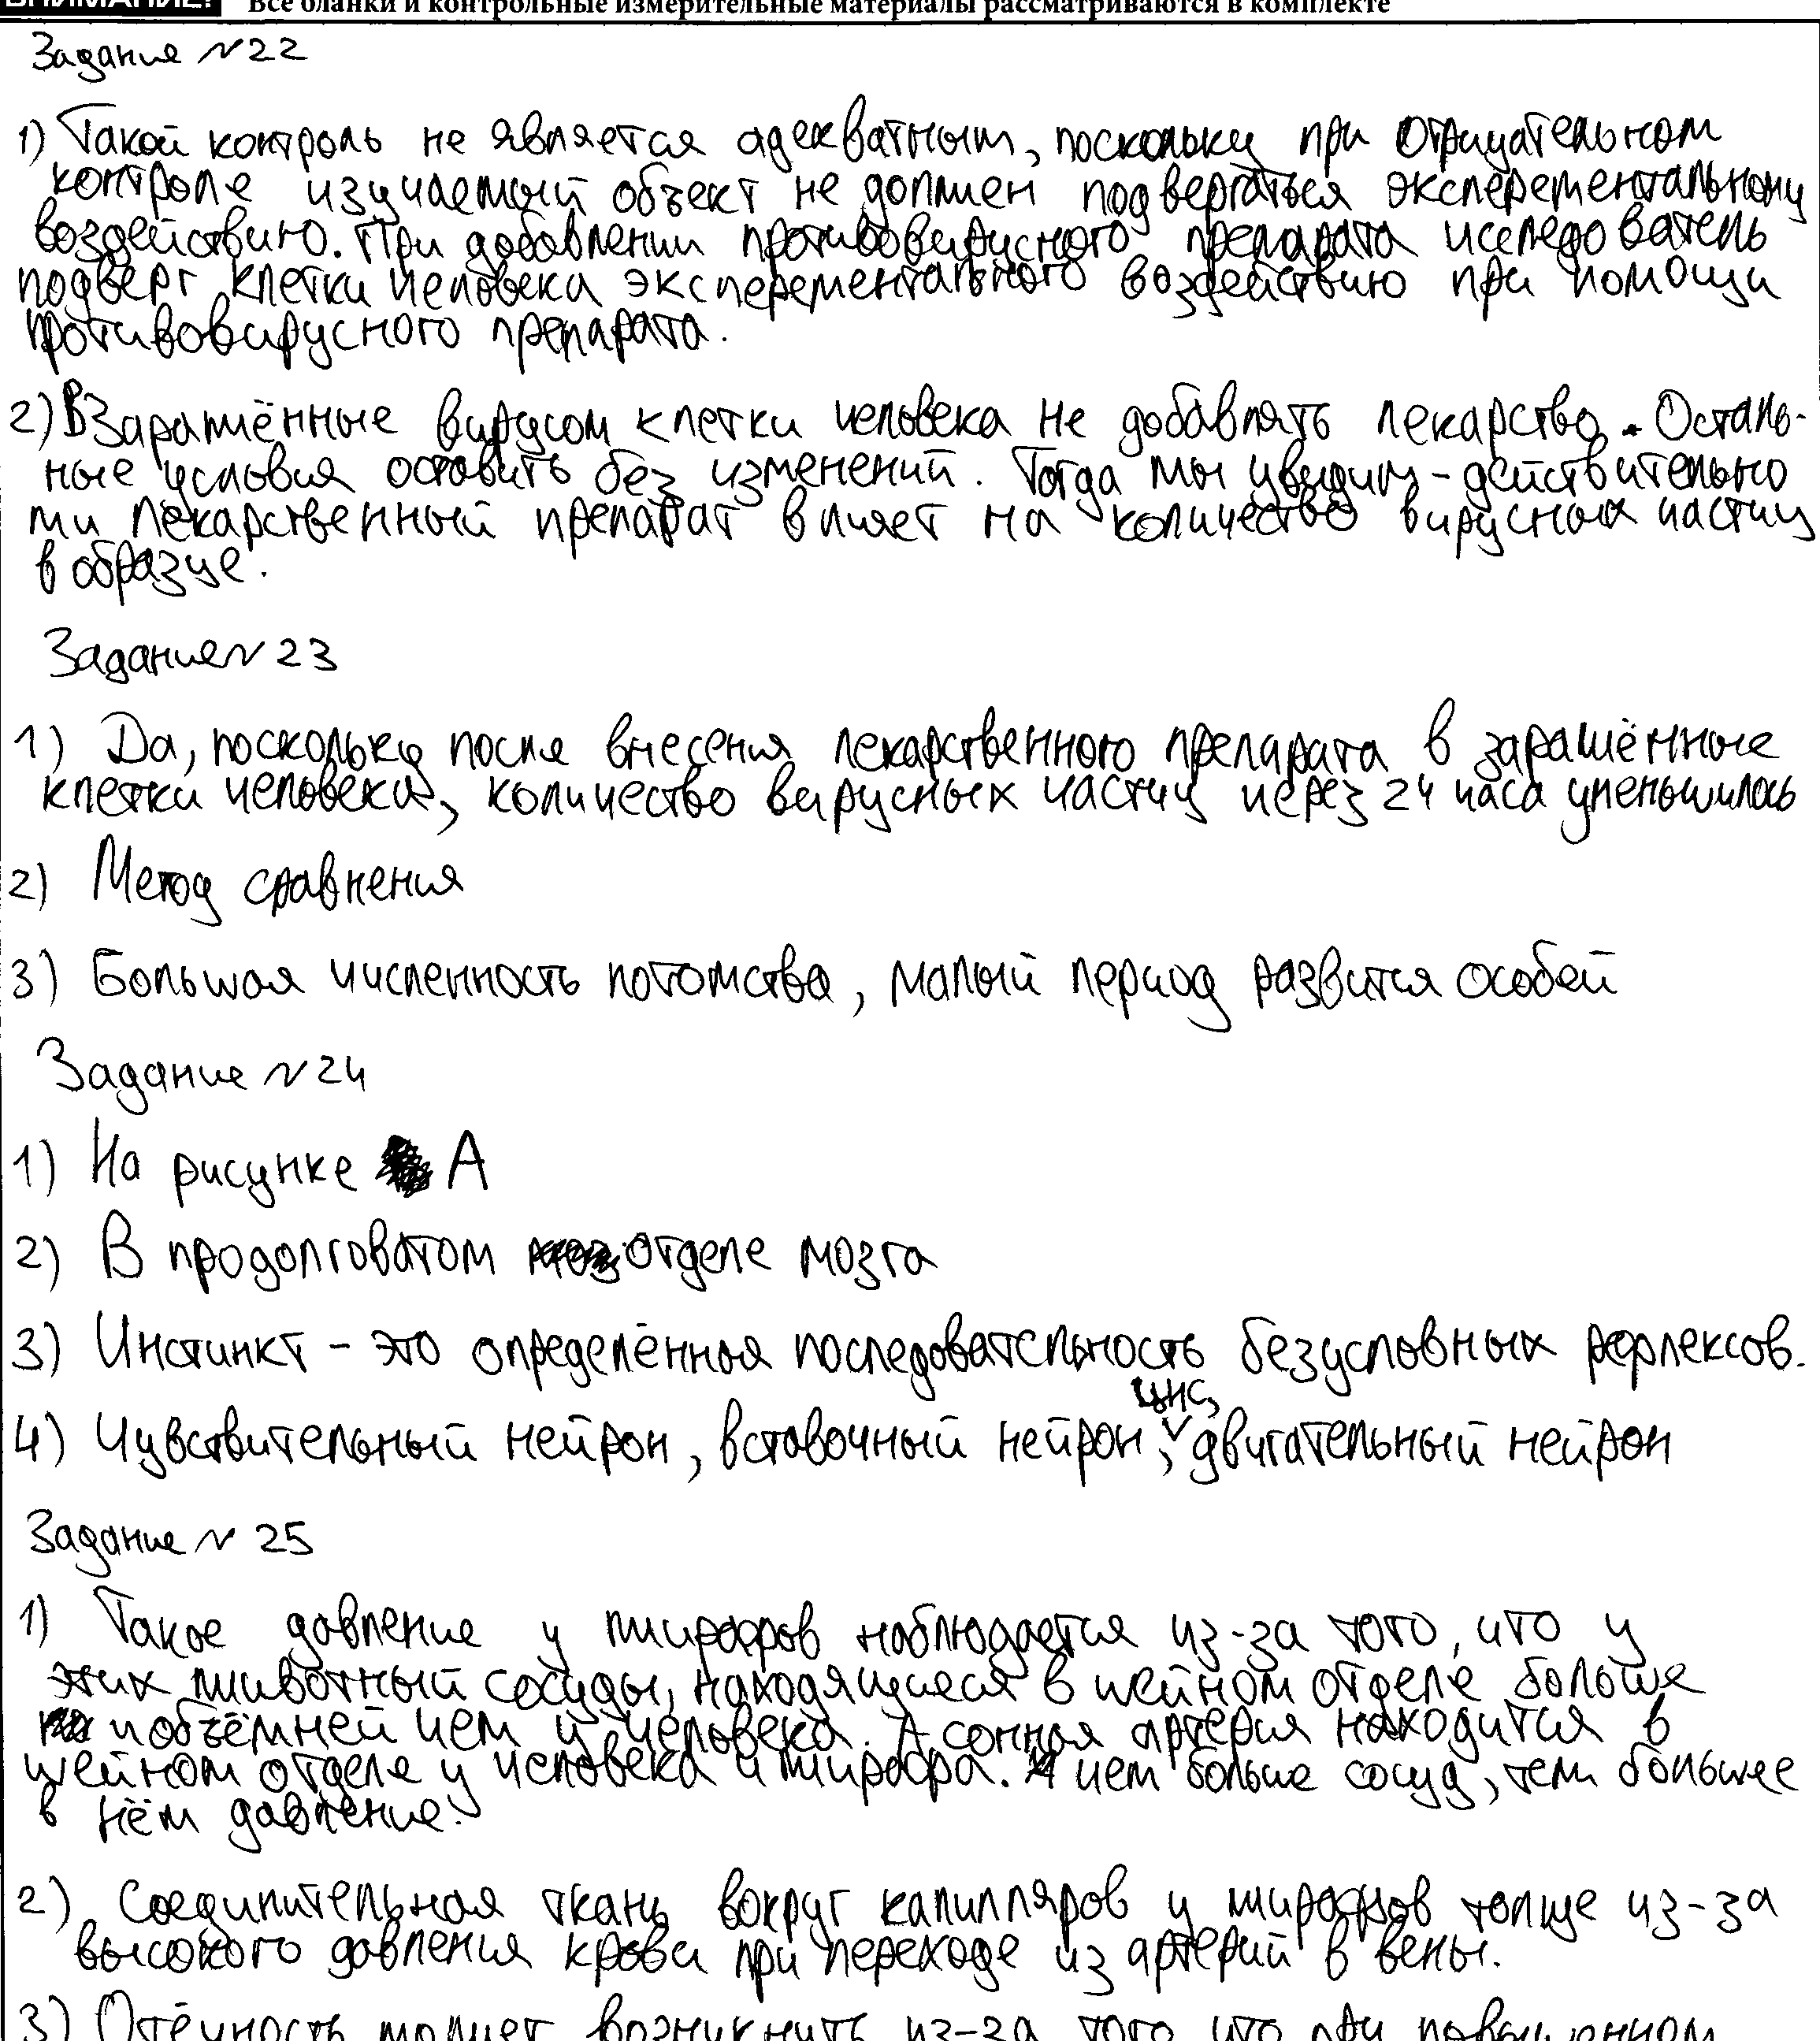 ВНИМАНИЕ! Все бланки и контрольные измерительные материалы рассматриваются в комплекте
Задание №22
1) Такой контроль не является адекватным, поскольку при отрицательном
контроле изучаемый объект не должен подвергаться эксперементальному
воздействию. При добавлении противовирусного препарата иследователь
подверг клетки человека эксперементального воздействию при помощи
противовирусного препарата.
2) В заражённые вирусом клетки человека не добавлять лекарство. Осталь-
ные условия оставить без изменений. Тогда мы увидим - действительно
ли лекарственный препарат влияет на количество вирусных частиц
в образце.
Задание № 23
1) Да, поскольку после внесения лекарственного препарата в заражённые
клетки человека, количество вирусных частиц через 24 часа уменьшилось
2) Метод сравнения
3) Большая численность потомства, малый период развития особей
Задание №24
1) На рисунке А
2) В продолговатом отделе мозга
3) Инстинкт - это определённая последовательность безусловных рефлексов.
4) Чувствительный нейрон, вставочный нейрон, ЦНС, двигательный нейрон
Задание № 25
1) Такое давление у жирафов наблюдается из-за того, что у
этих животный сосуды, находящиеся в шейном отделе больше
и объёмней чем у человека. А сонная артерия находится в
шейном отделе у человека и жирафа. И чем больше сосуд, тем большее
в нём давление.
2) Соединительная ткань вокруг капилляров у жирафов толще из-за
высокого давления крови при переходе из артерий в вены.
3) Отёчность может возникнить из-за того что при повышенном